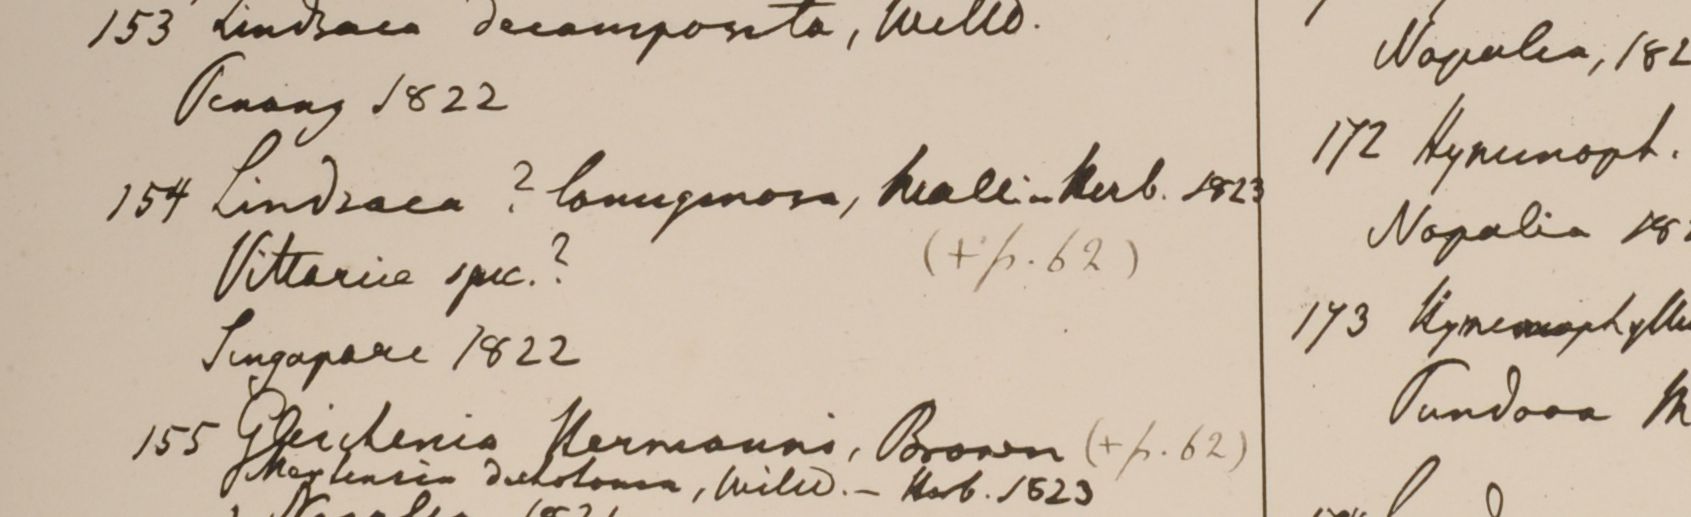 153 Lindsaea decomposita, Willd.
Penang 1822
154 Lindsaea ? lanuginosa, Wall. in Herb. 1823
Vittariae spec. ?
(+ p. 62)
Singapore 1822
155 Gleichenia Hermanni, Brown (+ p. 62)
Mertensia dichotoma, Willd. – Herb. 1823
Napalia, 182
172 Hymenoph.
Napalia 182
173 Hymenophyllu
Tundova M